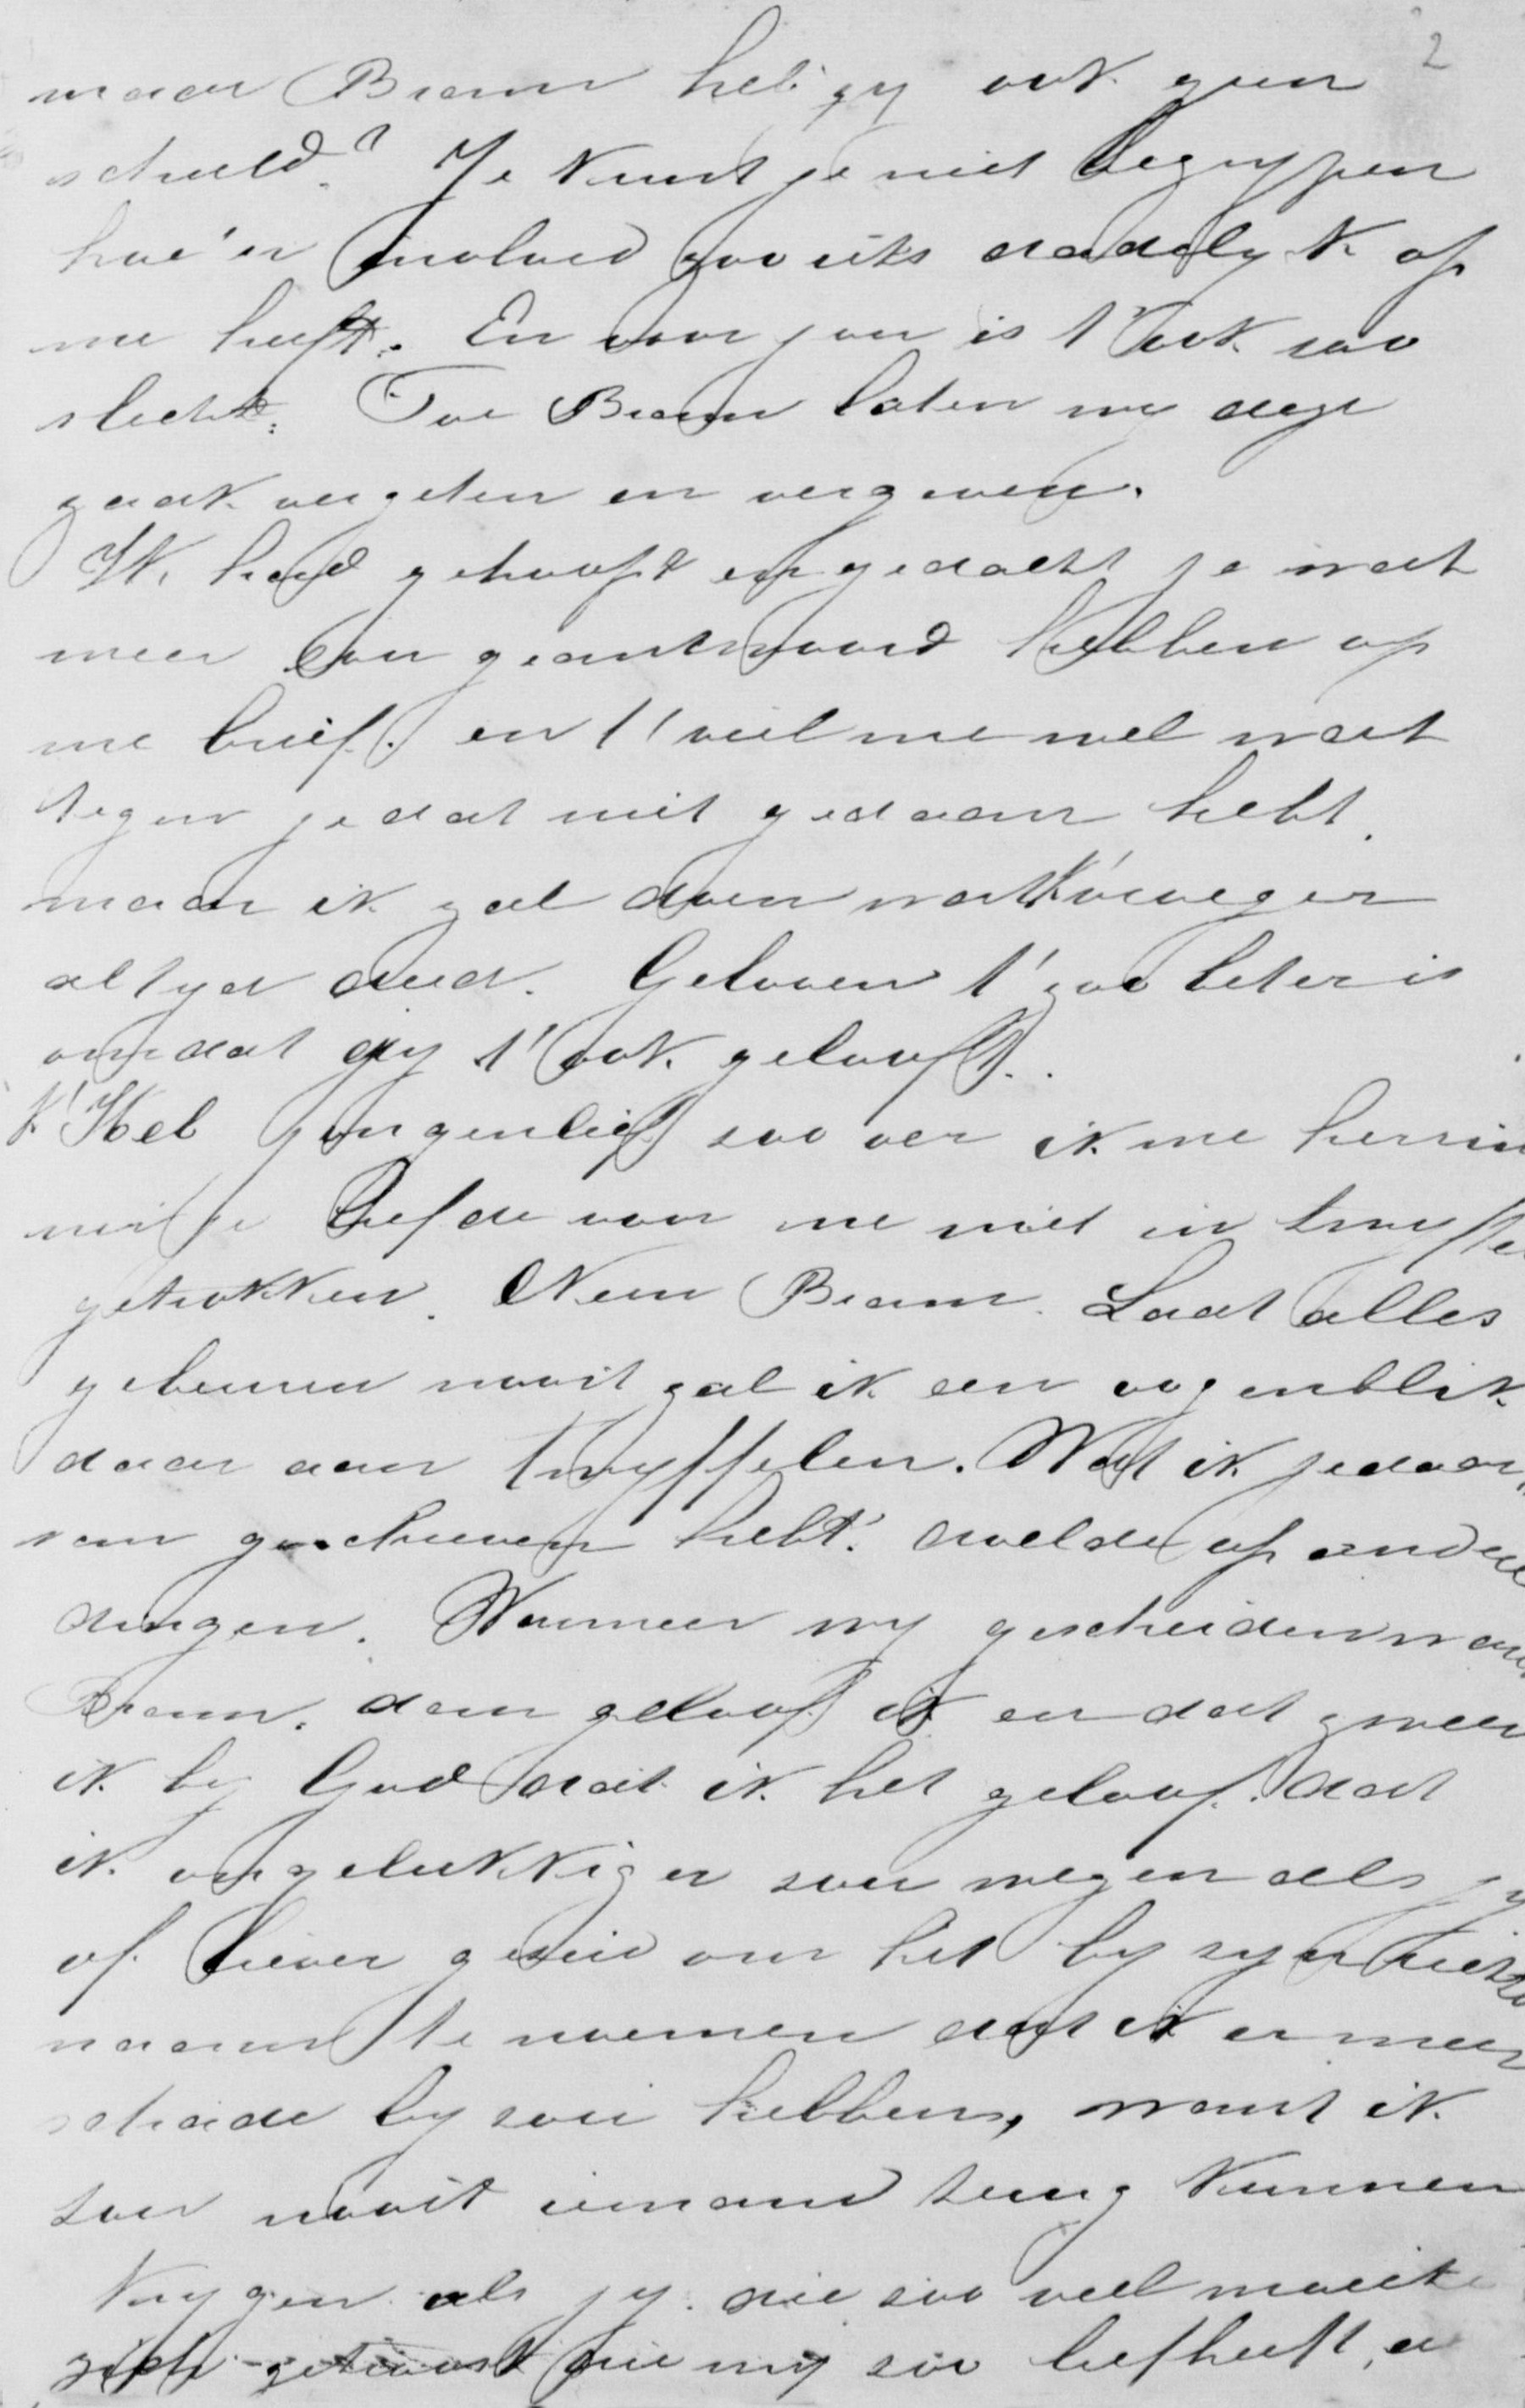 2
maar Bram heb gy ook geen
schuld? Je kunt je niet begrypen
hoe'n invloed zoo iets dadelyk op
me heeft. En voor jou is t'ook soo
slecht. Toe Bram laten wy deze
zaak vergeten en vergeven.
Ik had gehoopt en gedacht je wat
meer zou geantwoord hebben op
me brief. en t'viel me wel wat
tegen je dat niet gedaan hebt.
maar ik zal doen wat k'vroeger
altyd deed. Gelooven t'zoo beter is
omdat gy t'ook gelooft.
k'Heb jongenlief soo ver ik me herrin
ner je liefde voor me niet in twyffel
getrokken. Neen Bram. Laat alles
gebeuren nooit zal ik een oogenblik
daar aan twyffelen. Wat ik je daar
van geschreven hebt. doelde op andere
dingen. Wanneer wy gescheiden waren
Bram. dan geloof ik en dat zweer
ik by God dat ik het geloof. dat
ik ongelukkiger sou wezen als jy
of liever gezeid om het by zyn rechte
naam te noemen dat ik er meer
schade by sou hebben, want ik
sou nooit iemand terug kunnen
krygen als jy. die soo veel moeite
zich getroost die my soo liefheeft, en